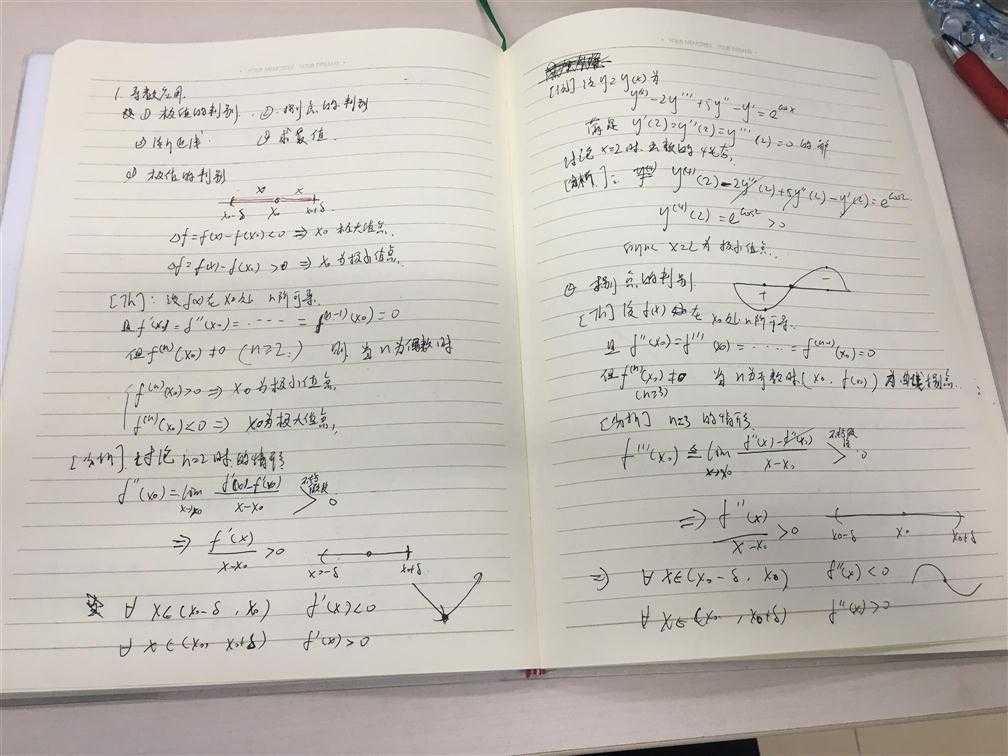 YOUR MEMORIES · YOUR DREAMS
1. 导数应用
① 极值的判别. ② 拐点的判别
④ 求最值
① 极值的判别
x x
x₀-δ x₀ x₀+δ
Δf=f(x)-f(x₀)<0 ⇒ x₀ 极大值点.
Δf=f(x)-f(x₀)>0 ⇒ x₀为极小值点.
[Th]: 设f(x)在x₀处 n阶可导.
且f'(x₀)=f''(x₀)=·····=f⁽ⁿ⁻¹⁾(x₀)=0
但f⁽ⁿ⁾(x₀)≠0 (n≥2.) 则 当n为偶数时
f⁽ⁿ⁾(x₀)>0 ⇒ x₀为极小值点.
f⁽ⁿ⁾(x₀)<0 ⇒ x₀为极大值点.
[分析] 讨论 n=2时的情形
f''(x₀)=lim x→x₀ (f'(x)-f'(x₀))/(x-x₀) > 0
⇒ f'(x)/(x-x₀) >0
x₀-δ x₀+δ
∀ x∈(x₀-δ, x₀) f'(x)<0
∀ x∈(x₀, x₀+δ) f'(x)>0
YOUR MEMORIES · YOUR DREAMS
[例] 设y=y(x)为
y⁽⁴⁾-2y'''+5y''-y'=e^cosx
满足 y'(2)=y''(2)=y'''(2)=0的解
讨论x=2时函数的
[分析]: y⁽⁴⁾(2)-2y'''(2)+5y''(2)-y'(2)=e^cos2
y⁽⁴⁾(2)=e^cos2>0
x=2为极小值点.
② 拐点的判别
+ -
[Th] 设f(x)在x₀处n阶可导.
且f''(x₀)=f'''(x₀)=·····=f⁽ⁿ⁻¹⁾(x₀)=0
但f⁽ⁿ⁾(x₀)≠0 当n为奇数时(x₀, f(x₀))为曲线拐点.
(n≥3)
[分析] n=3的情形
f'''(x₀) ≜ lim x→x₀ (f''(x)-f''(x₀))/(x-x₀) > 0
⇒ f''(x)/(x-x₀) >0
x₀-δ x₀ x₀+δ
⇒ ∀ x∈(x₀-δ, x₀) f''(x)<0
∀ x∈(x₀, x₀+δ) f''(x)>0